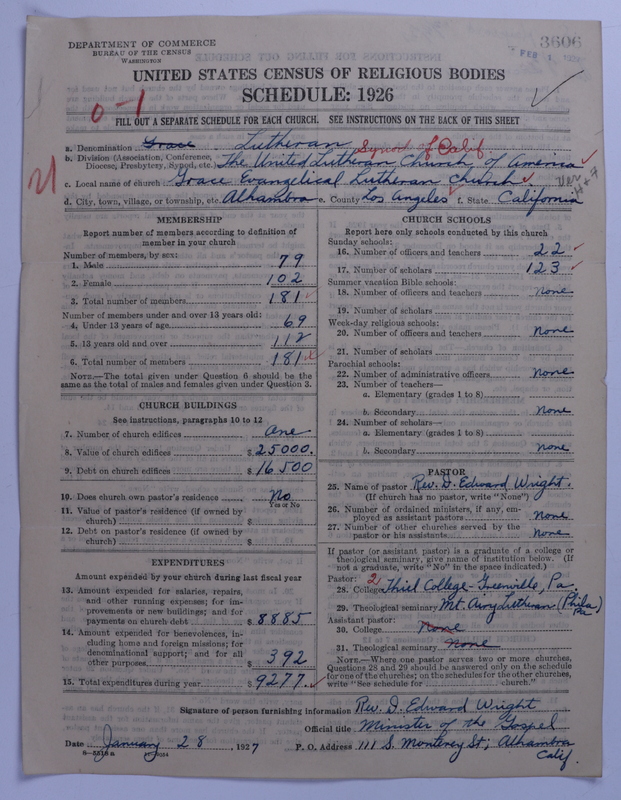 DEPARTMENT OF COMMERCE
BUREAU OF THE CENSUS
WASHINGTON
3606
FEB 1
UNITED STATES CENSUS OF RELIGIOUS BODIES
SCHEDULE: 1926
0-1
FILL OUT A SEPARATE SCHEDULE FOR EACH CHURCH. SEE INSTRUCTIONS ON THE BACK OF THIS SHEET
a. Denomination Grace Lutheran Synod of Calif.
b. Division (Association, Conference, Diocese, Presbytery, Synod, etc.) The United Lutheran Church of America
c. Local name of church Grace Evangelical Lutheran church
d. City, town, village, or township, etc. Alhambra e. County Los Angeles f. State California
MEMBERSHIP
Report number of members according to definition of
member in your church
Number of members, by sex:
1. Male 79
2. Female 102
3. Total number of members 181
Number of members under and over 13 years old:
4. Under 13 years of age 69
5. 13 years old and over 112
6. Total number of members 181
NOTE.—The total given under Question 6 should be the
same as the total of males and females given under Question 3.
CHURCH BUILDINGS
See instructions, paragraphs 10 to 12
7. Number of church edifices One
8. Value of church edifices $ 25000.
9. Debt on church edifices $ 16500
10. Does church own pastor's residence No
Yes or No
11. Value of pastor's residence (if owned by
church) $
12. Debt on pastor's residence (if owned by
church) $
EXPENDITURES
Amount expended by your church during last fiscal year
13. Amount expended for salaries, repairs,
and other running expenses; for im-
provements or new buildings; and for
payments on church debt $ 8885
14. Amount expended for benevolences, in-
cluding home and foreign missions; for
denominational support; and for all
other purposes $ 392
15. Total expenditures during year $ 9277
CHURCH SCHOOLS
Report here only schools conducted by this church
Sunday schools:
16. Number of officers and teachers 22
17. Number of scholars 123
Summer vacation Bible schools:
18. Number of officers and teachers None
19. Number of scholars
Week-day religious schools:
20. Number of officers and teachers None
21. Number of scholars
Parochial schools:
22. Number of administrative officers None
23. Number of teachers—
a. Elementary (grades 1 to 8)
b. Secondary None
24. Number of scholars—
a. Elementary (grades 1 to 8)
b. Secondary None
PASTOR
25. Name of pastor Rev. I. Edward Wright.
(If church has no pastor, write "None")
26. Number of ordained ministers, if any, em-
ployed as assistant pastors None
27. Number of other churches served by the
pastor or his assistants None
If pastor (or assistant pastor) is a graduate of a college or
theological seminary, give name of institution below. (If
not a graduate, write "No" in the space indicated.)
Pastor: 2
28. College Thiel College - Greenville, Pa.
29. Theological seminary Mt. Airy Lutheran (Phila Pa)
Assistant pastor:
30. College None
31. Theological seminary None
NOTE.—Where one pastor serves two or more churches,
Questions 28 and 29 should be answered only on the schedule
for one of the churches; on the schedules for the other churches,
write "See schedule for church."
Signature of person furnishing information Rev. I. Edward Wright
Official title Minister of the Gospel
Date January 28, 1927 P. O. Address 111 S. Monterey St; Alhambra
Calif.